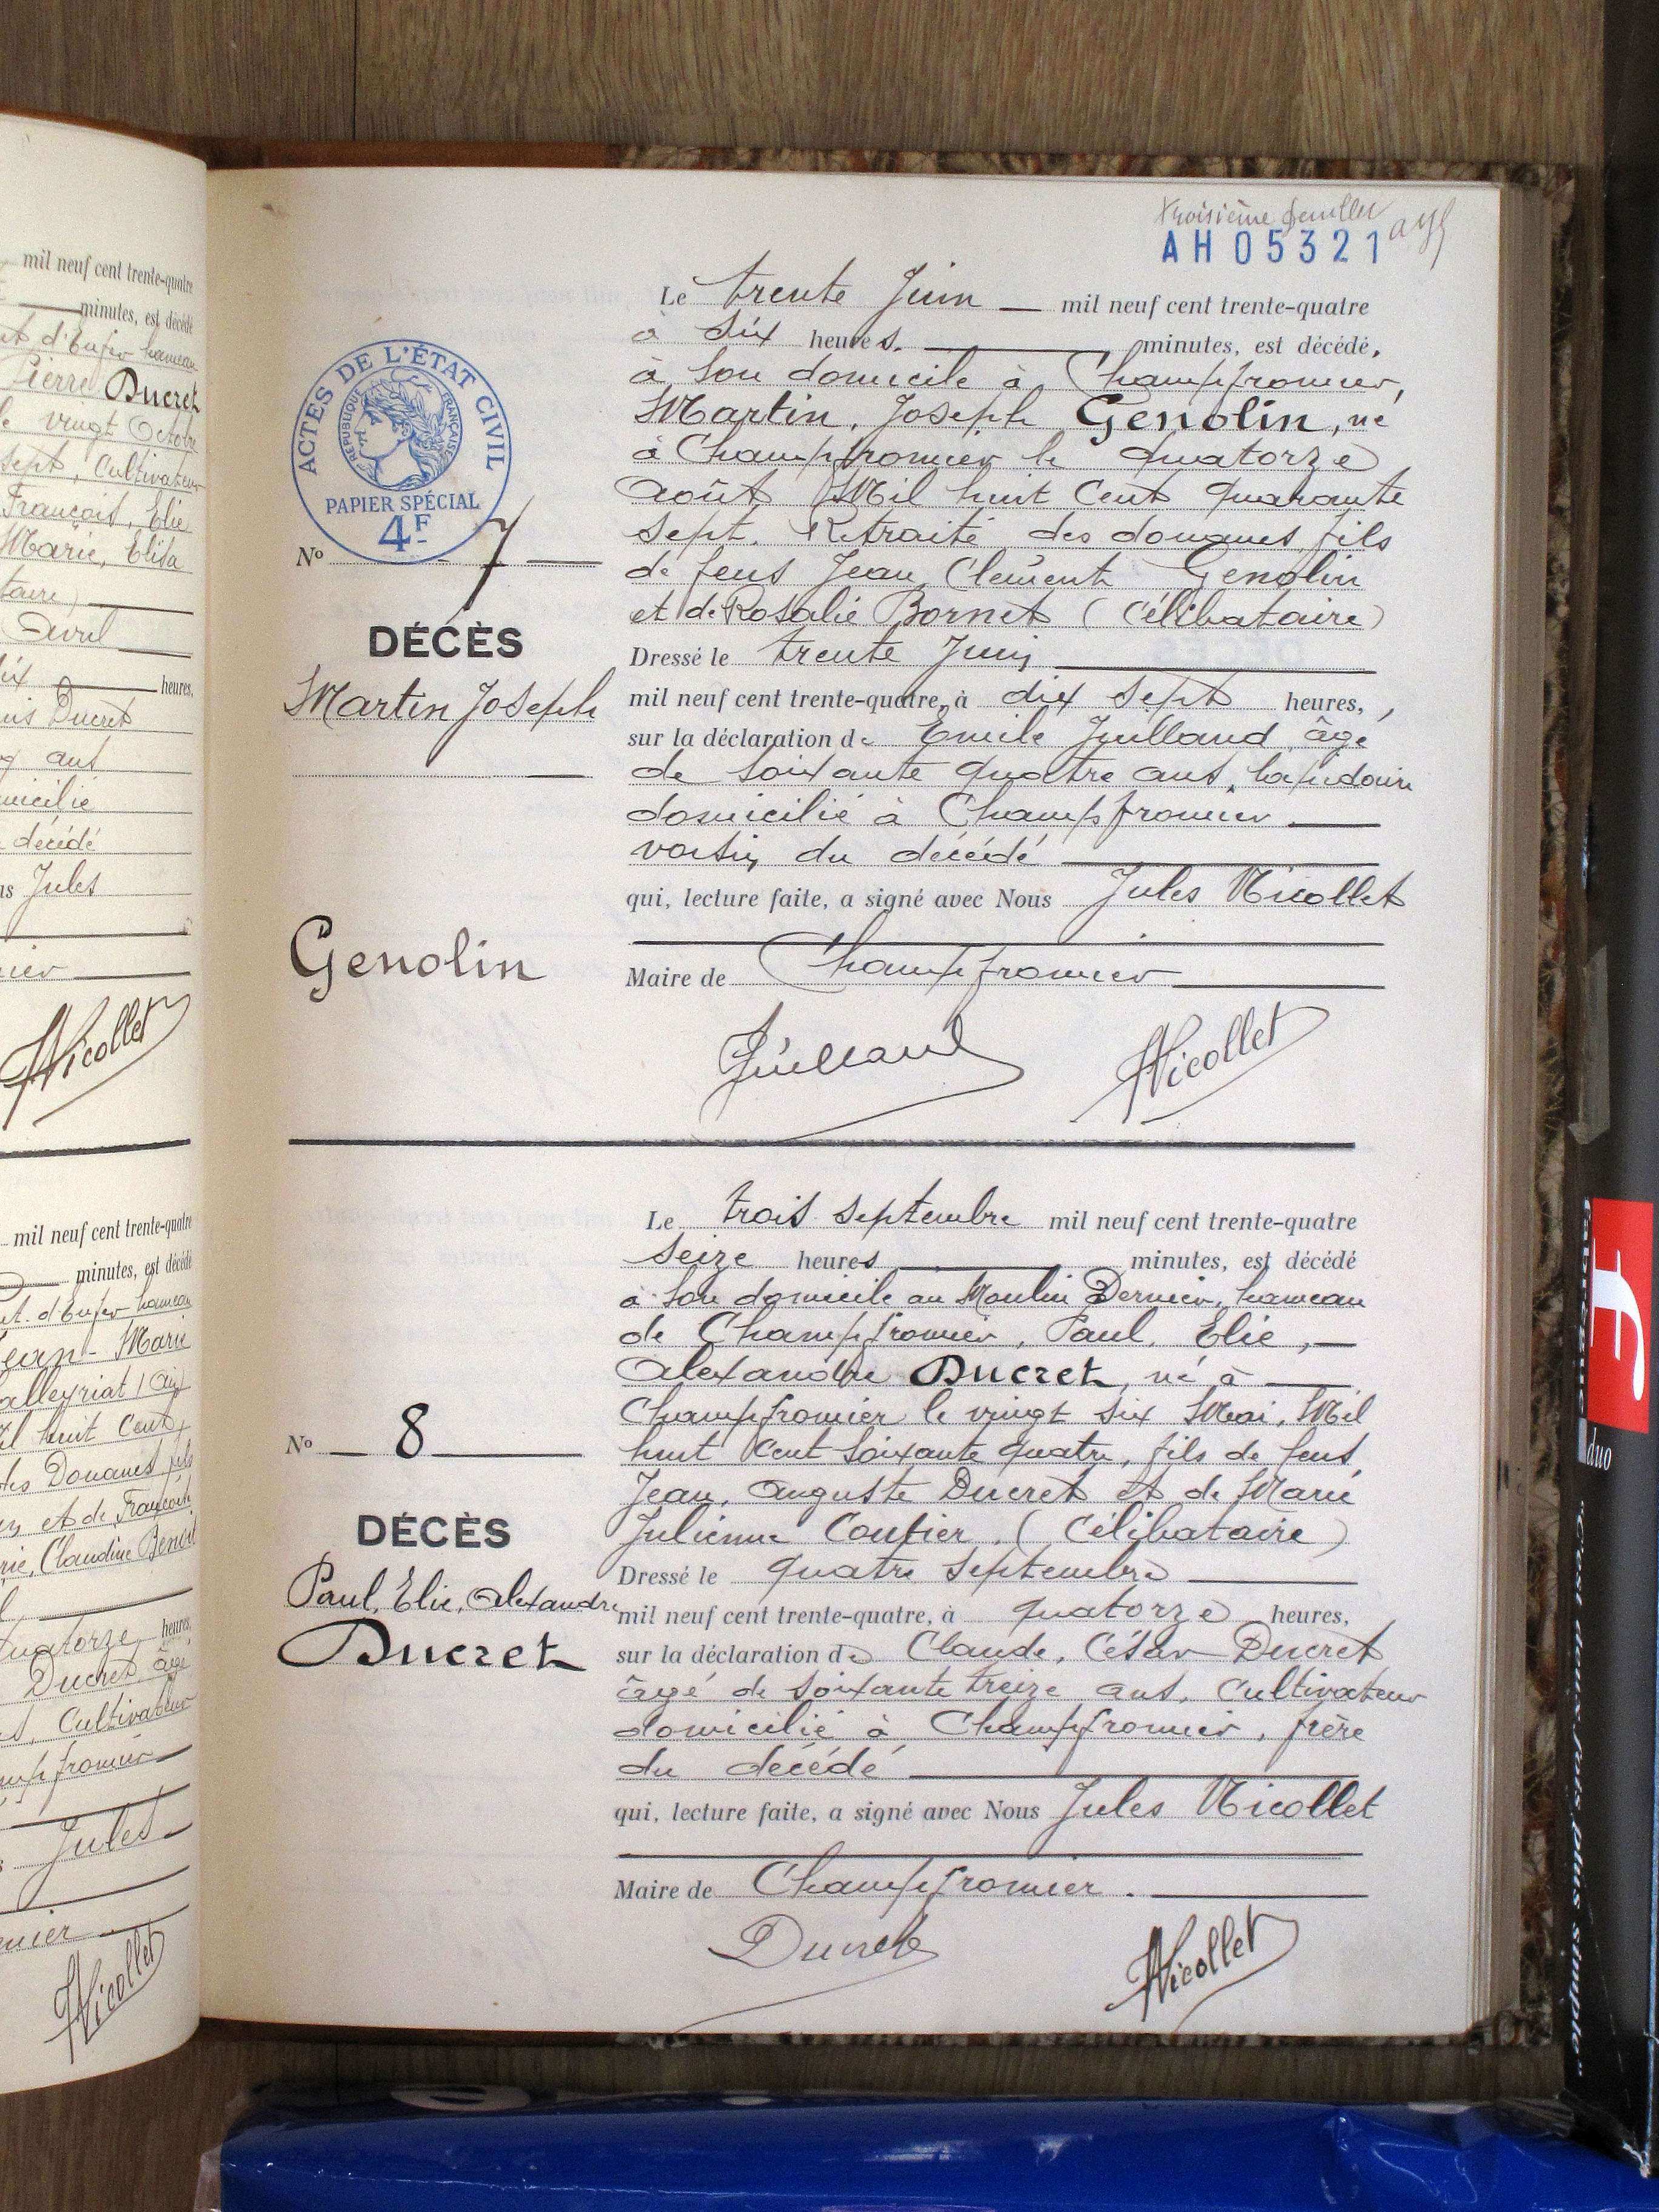 mil neuf cent trente-quatre
minutes, est décédé
d'Enfer hameau
Pierre Ducret
vingt Octobre
sept, Cultivateur
François, Elie
Marie, Elisa
Avril
heures,
Ducret
ans
décédé
Jules
Nicollet
mil neuf cent trente-quatre
minutes, est décédé
d'Enfer hameau
Jean-Marie
huit Cent
des Douanes fils
et de Françoise
Claudine Benoit
quatorze heures,
Ducret âgé
Cultivateur
Jules
Nicollet
troisième feuillet
AH05321
Le trente Juin mil neuf cent trente-quatre
à six heures. minutes, est décédé,
à son domicile à Champfromier,
Martin, Joseph Genolin, né
à Champfromier le quatorze
Août Mil huit Cent quarante
sept. Retraité des douanes, fils
de feus Jean, Clément Genolin
et de Rosalie Bornet (Célibataire)
Dressé le trente Juin
mil neuf cent trente-quatre, à dix sept heures,
sur la déclaration de Emile Juilland âgé
de soixante quatre ans, lapidaire
domicilié à Champfromier
voisin du décédé
qui, lecture faite, a signé avec Nous Jules Nicollet
Maire de Champfromier
Juilland Nicollet
ACTES DE L'ÉTAT CIVIL
RÉPUBLIQUE FRANÇAISE
PAPIER SPÉCIAL
4F
No 7
DÉCÈS
Martin Joseph
Genolin
Le trois septembre mil neuf cent trente-quatre
seize heures minutes, est décédé
à son domicile au Moulin Dernier, hameau
de Champfromier, Paul, Elie,
Alexandre Ducret, né à
Champfromier le vingt six Mai, Mil
huit Cent soixante quatre, fils de feus
Jean, Auguste Ducret et de Marie
Julienne Coutier. (Célibataire)
Dressé le quatre septembre
mil neuf cent trente-quatre, à quatorze heures,
sur la déclaration de Claude, César Ducret
âgé de soixante treize ans, Cultivateur
domicilié à Champfromier, frère
du décédé
qui, lecture faite, a signé avec Nous Jules Nicollet
Maire de Champfromier.
Ducret Nicollet
No 8
DÉCÈS
Paul, Elie, Alexandre
Ducret
duo